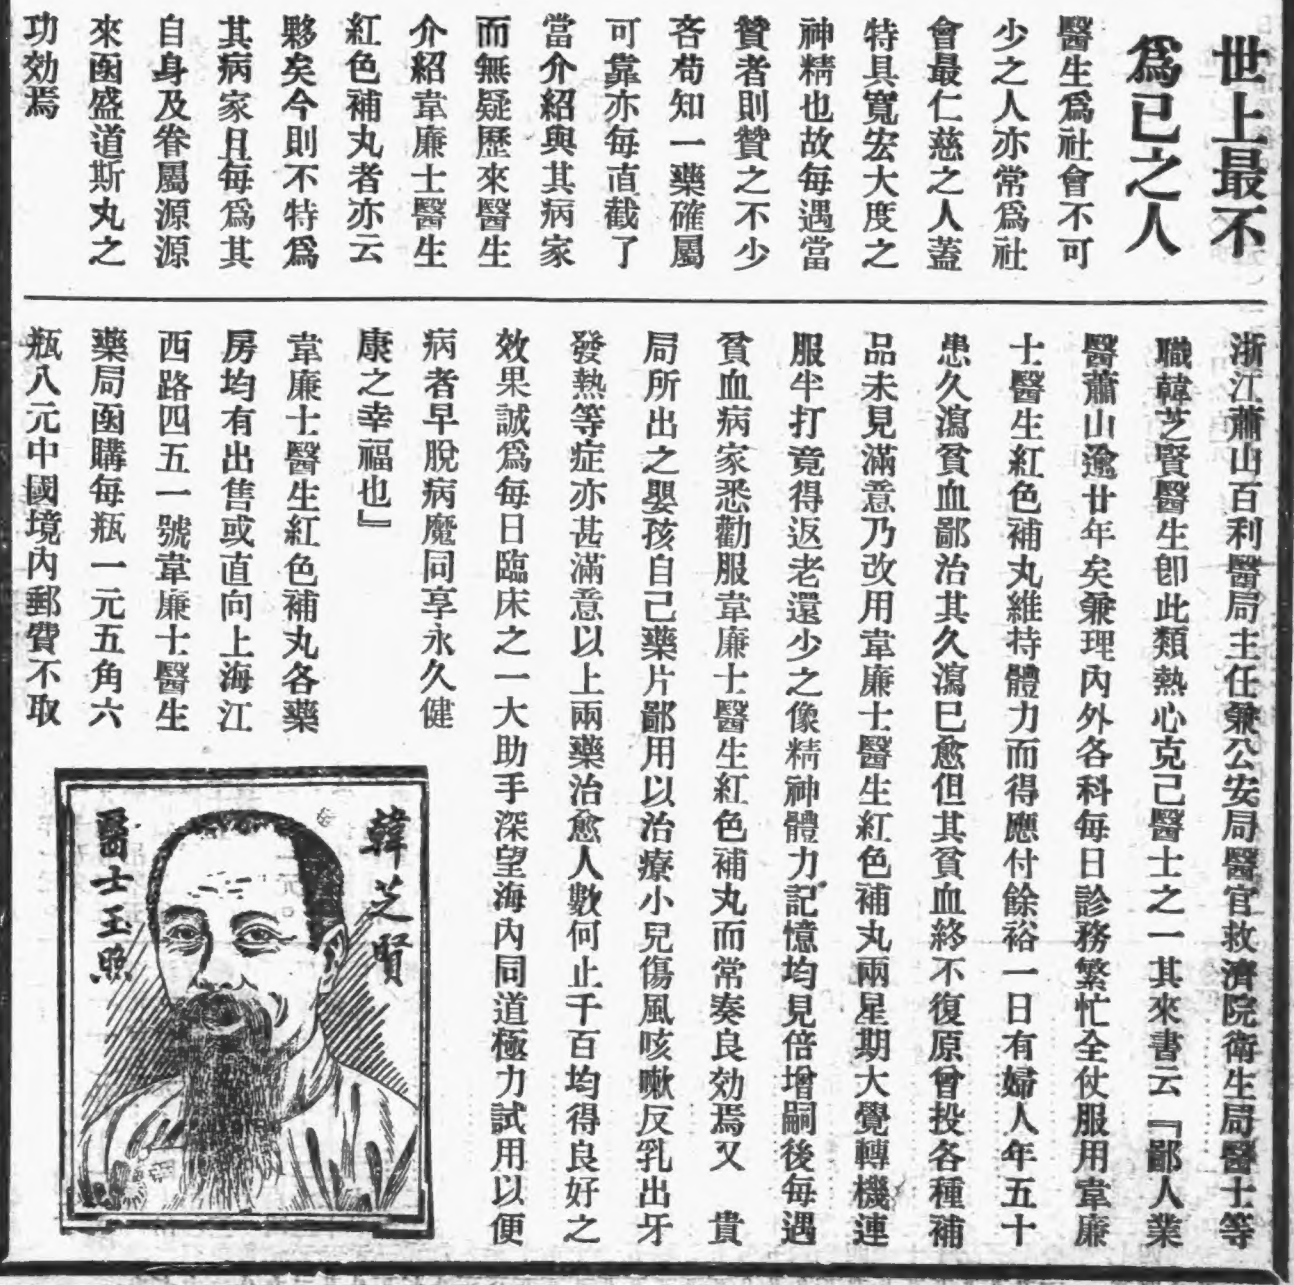 世上最不
爲已之人
醫生爲社會不可
少之人亦常爲社
會最仁慈之人蓋
特具寬宏大度之
神精也故每遇當
贊者則贊之不少
吝苟知一藥確屬
可靠亦每直截了
當介紹與其病家
而無疑歷來醫生
介紹韋廉士醫生
紅色補丸者亦云
夥矣今則不特爲
其病家且每爲其
自身及眷屬源源
來函盛道斯丸之
功効焉
浙江蕭山百利醫局主任兼公安局醫官救濟院衛生局醫士等
職韓芝賢醫生卽此類熱心克己醫士之一其來書云『鄙人業
醫蕭山逾廿年矣兼理內外各科每日診務繁忙全仗服用韋廉
士醫生紅色補丸維持體力而得應付餘裕一日有婦人年五十
患久瀉貧血鄙治其久瀉巳愈但其貧血終不復原曾投各種補
品未見滿意乃改用韋廉士醫生紅色補丸兩星期大覺轉機連
服半打竟得返老還少之像精神體力記憶均見倍增嗣後每遇
貧血病家悉勸服韋廉士醫生紅色補丸而常奏良効焉又　貴
局所出之嬰孩自己藥片鄙用以治療小兒傷風咳嗽反乳出牙
發熱等症亦甚滿意以上兩藥治愈人數何止千百均得良好之
效果誠爲每日臨床之一大助手深望海內同道極力試用以便
病者早脫病魔同享永久健
康之幸福也』
韋廉士醫生紅色補丸各藥
房均有出售或直向上海江
西路四五一號韋廉士醫生
藥局函購每瓶一元五角六
瓶八元中國境內郵費不取
韓芝賢
醫士玉照